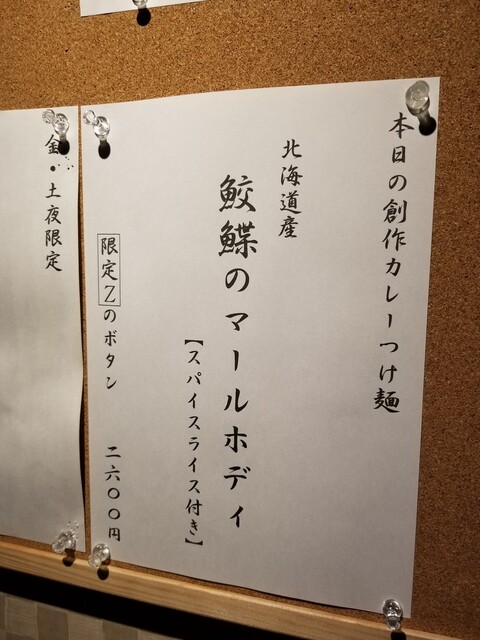 本日の創作カレーつけ麺
北海道産
鮫鰈のマールホディ
【スパイスライス付き】
限定Zのボタン 二六〇〇円
金・土夜限定